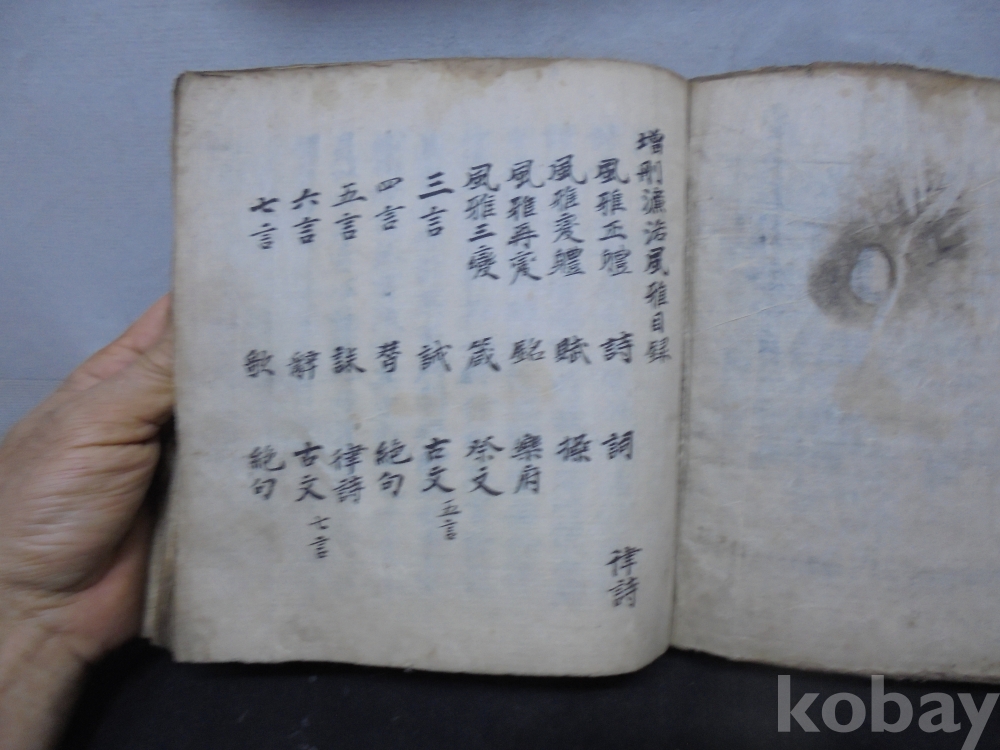 增刪濂洛風雅目錄
風雅正體 詩 詞 律詩
風雅變體 賦 操
風雅再變 銘 樂府
風雅三變 箴 祭文
三言 誡 古文 五言
四言 贊 絶句
五言 誄 律詩
六言 辭 古文 七言
七言 歌 絶句
kobay